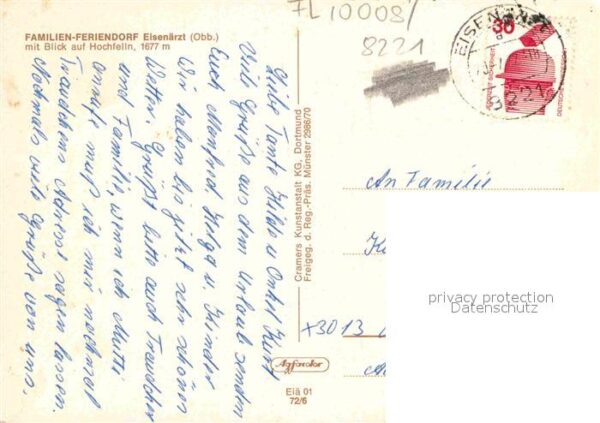 FAMILIEN-FERIENDORF Eisenärzt (Obb.)
mit Blick auf Hochfelln, 1677 m
FL 10008/
8221
EISENÄRZT
30
8221
DEUTSCHE
Liebe Tante Hilde u Onkel Kurt
Viele Grüße aus dem Urlaub senden
Euch Manfred Helga u. Kinder
Wir haben bis jetzt sehr schönes
Wetter. Grüßt bitte auch Traudchen
und Familie, wenn ich Mutti
anrufe muß ich mir nochmal
Traudchens Adresse sagen lassen.
Nochmals viele Grüße von uns.
Cramers Kunstanstalt KG. Dortmund
Freigeg. d. Reg.-Präs. Münster 2986/70
Agfacolor
Eiä 01
72/6
An Familie
+3013
privacy protection
Datenschutz